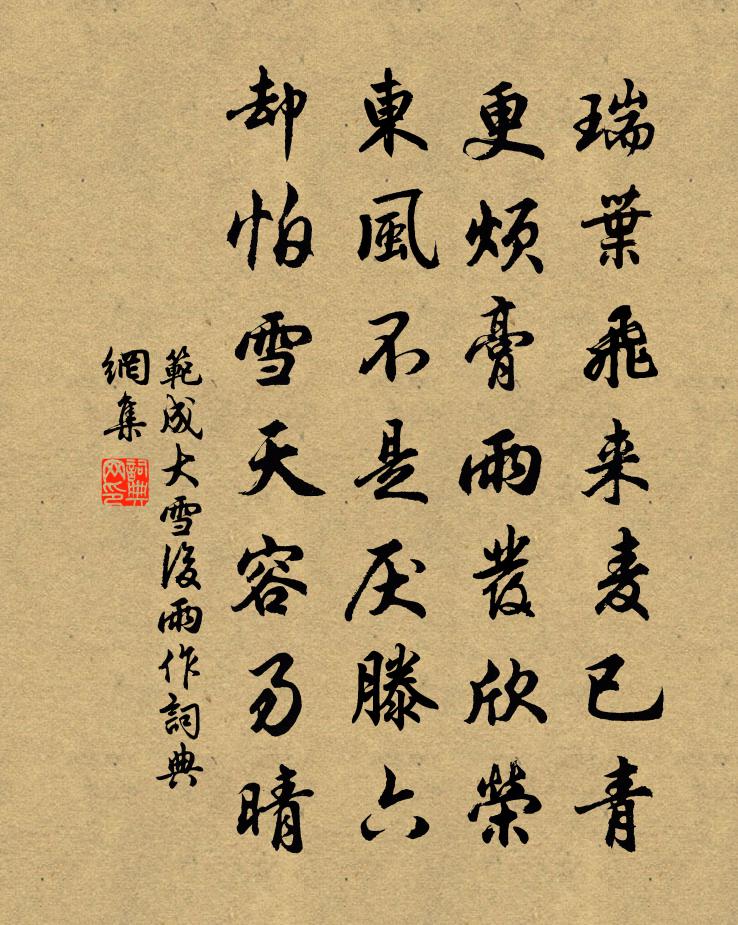 瑞葉飛来麦已青
更煩膏雨發欣榮
東風不是厌滕六
却怕雪天容易晴
範成大雪後雨作詞典
網集
詞典
网印